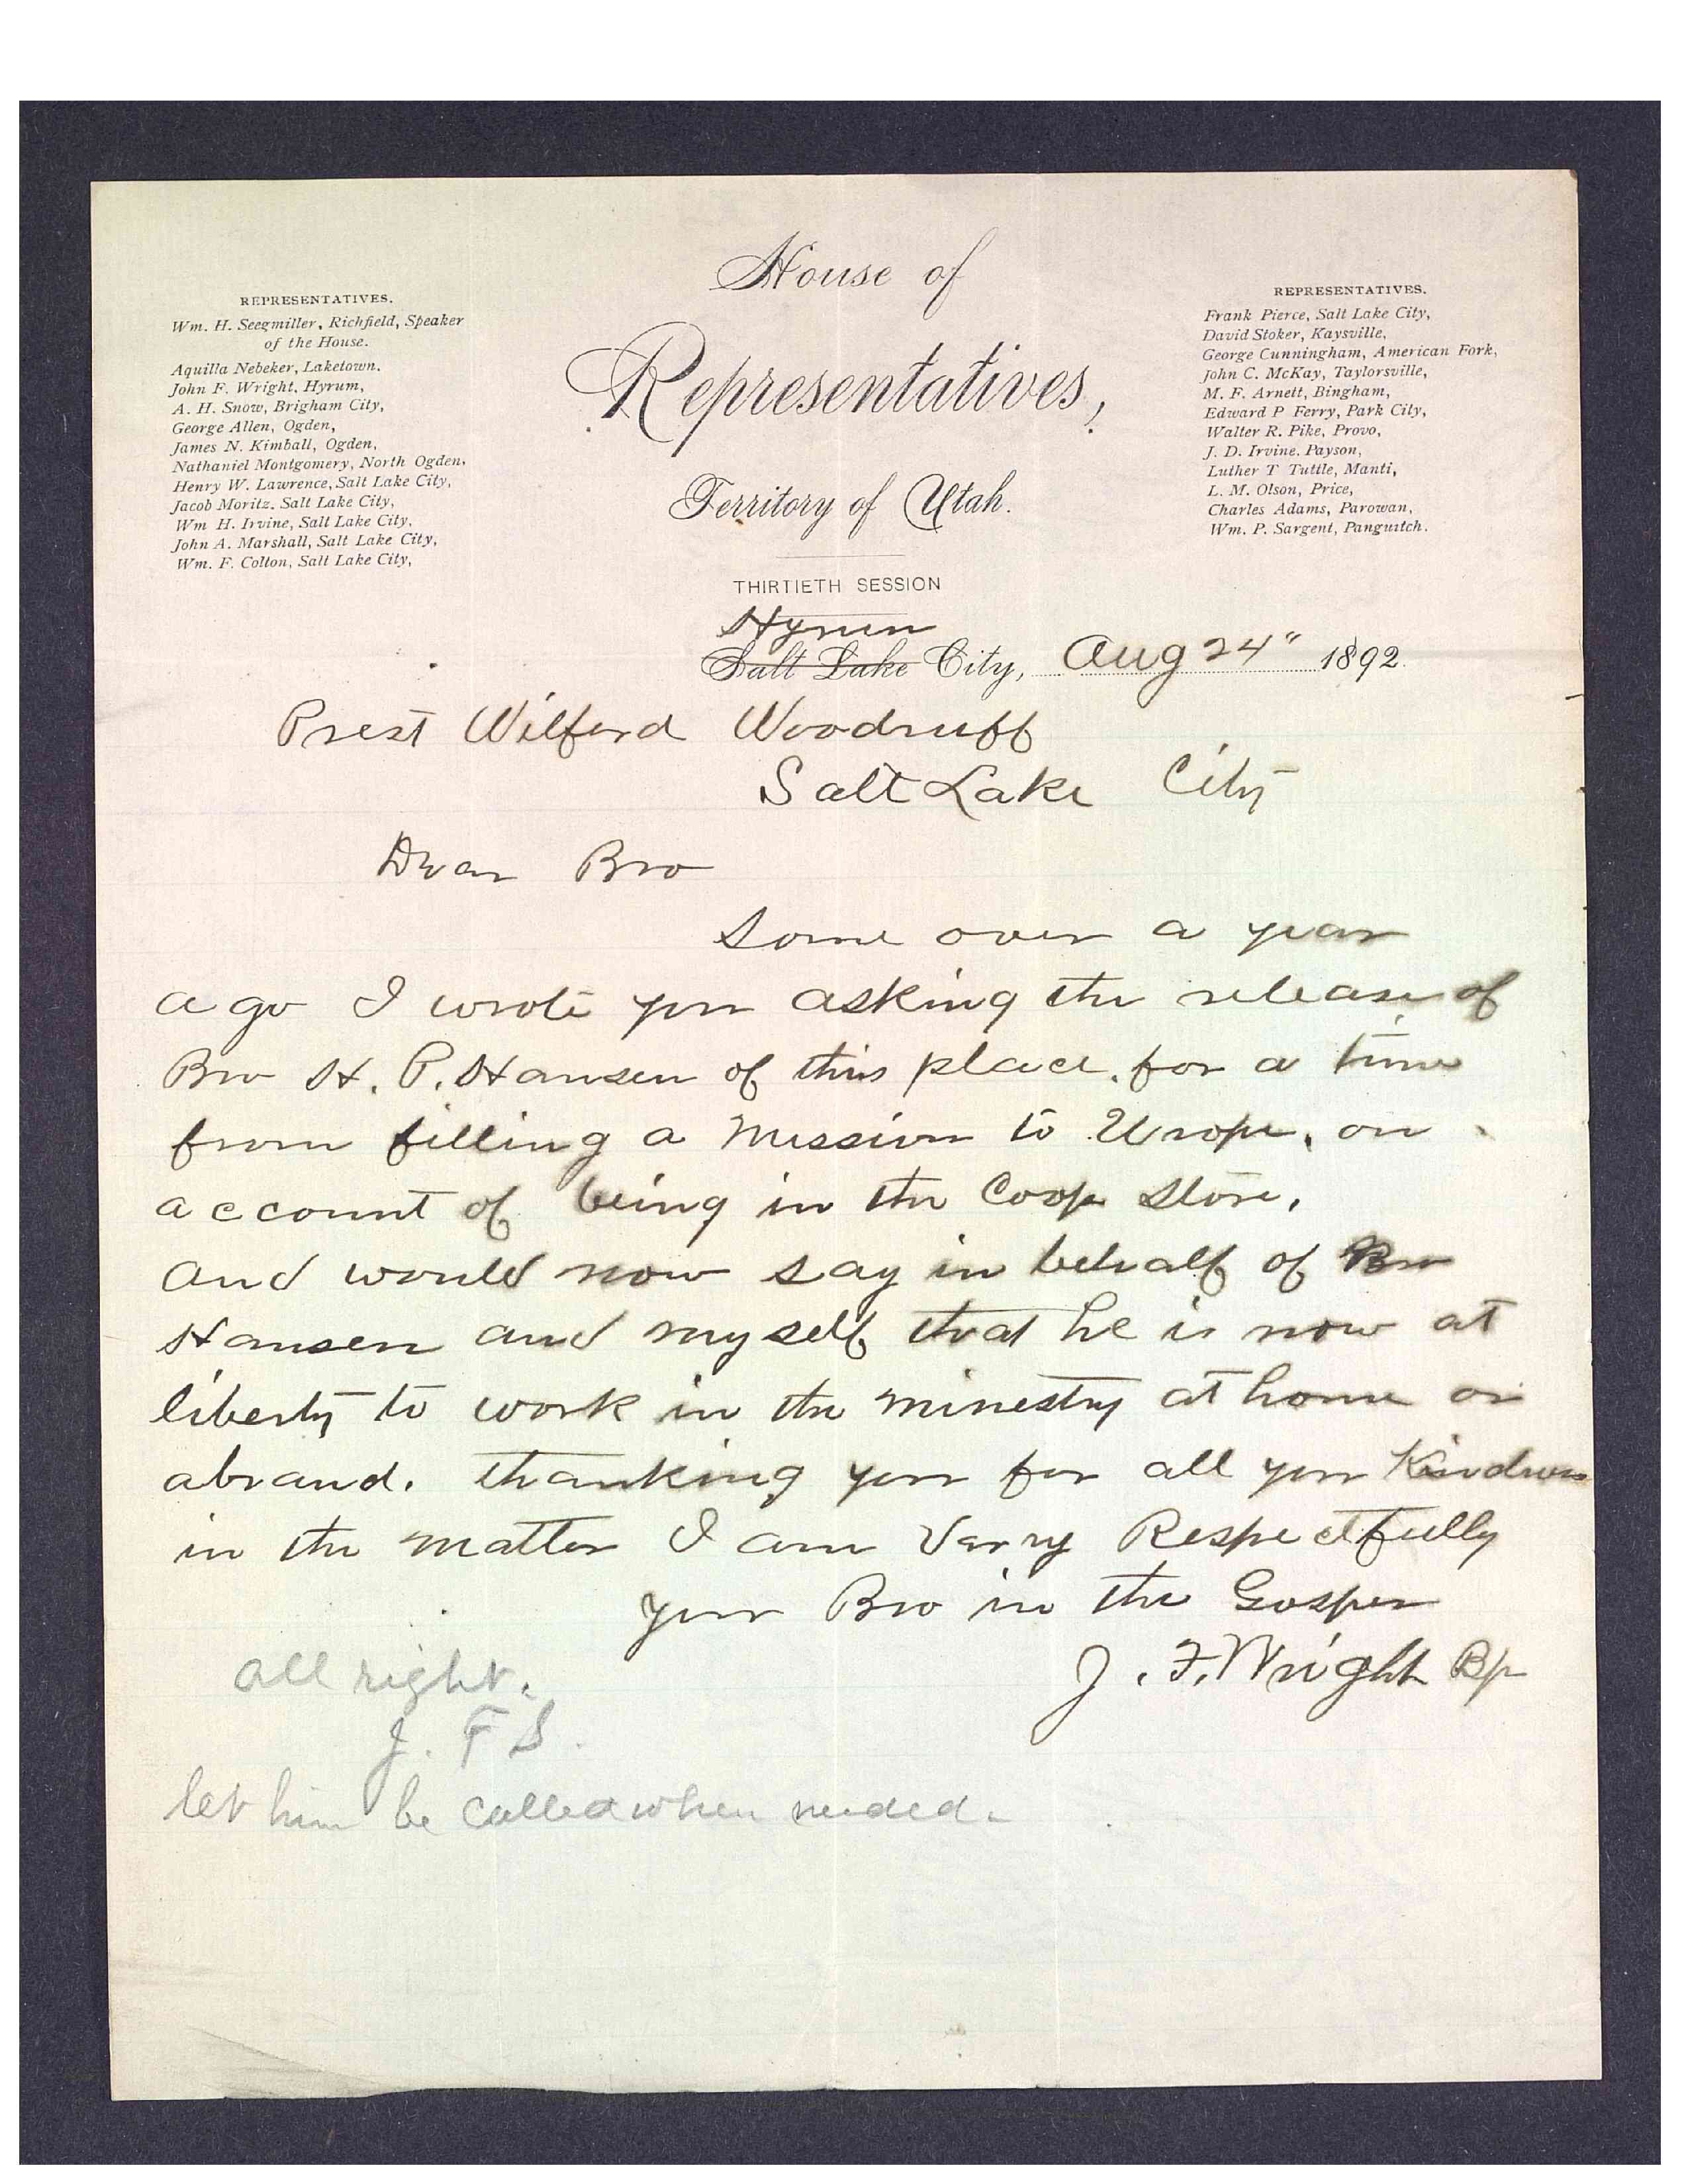 House of
Representatives,
Territory of Utah.
THIRTIETH SESSION
REPRESENTATIVES.
Wm. H. Seegmiller, Richfield, Speaker
of the House.
Aquilla Nebeker, Laketown.
John F. Wright, Hyrum,
A. H. Snow, Brigham City,
George Allen, Ogden,
James N. Kimball, Ogden,
Nathaniel Montgomery, North Ogden,
Henry W. Lawrence, Salt Lake City,
Jacob Moritz. Salt Lake City,
Wm H. Irvine, Salt Lake City,
John A. Marshall, Salt Lake City,
Wm. F. Colton, Salt Lake City,
REPRESENTATIVES.
Frank Pierce, Salt Lake City,
David Stoker, Kaysville,
George Cunningham, American Fork,
John C. McKay, Taylorsville,
M. F. Arnett, Bingham,
Edward P Ferry, Park City,
Walter R. Pike, Provo,
J. D. Irvine. Payson,
Luther T Tuttle, Manti,
L. M. Olson, Price,
Charles Adams, Parowan,
Wm. P. Sargent, Panguitch.
Hyrum
Salt Lake City, Aug 24" 1892
Prest Wilferd Woodruff
Salt Lake City
Dear Bro
Some over a year
a go I wrote you asking the release of
Bro H. P. Hansen of this place. for a time
from filling a Mission to Urope, on
account of being in the Coop Store.
and would now say in behalf of Bro
Hansen and myself that he is now at
liberty to work in the minestry at home or
abraud. thanking you for all your Kindness
in the matter I am Verry Respectfully
your Bro in the Gosper
J. F. Wright Bp
all right.
J. F S.
let him be called when needed.